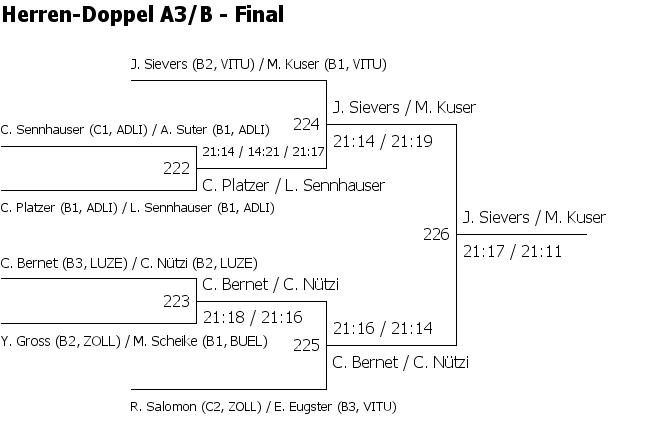 Herren-Doppel A3/B - Final
J. Sievers (B2, VITU) / M. Kuser (B1, VITU)
J. Sievers / M. Kuser
C. Sennhauser (C1, ADLI) / A. Suter (B1, ADLI)
224
21:14 / 21:19
21:14 / 14:21 / 21:17
222
C. Platzer / L. Sennhauser
C. Platzer (B1, ADLI) / L. Sennhauser (B1, ADLI)
J. Sievers / M. Kuser
226
21:17 / 21:11
C. Bernet (B3, LUZE) / C. Nützi (B2, LUZE)
C. Bernet / C. Nützi
223
21:18 / 21:16
21:16 / 21:14
Y. Gross (B2, ZOLL) / M. Scheike (B1, BUEL)
225
C. Bernet / C. Nützi
R. Salomon (C2, ZOLL) / E. Eugster (B3, VITU)